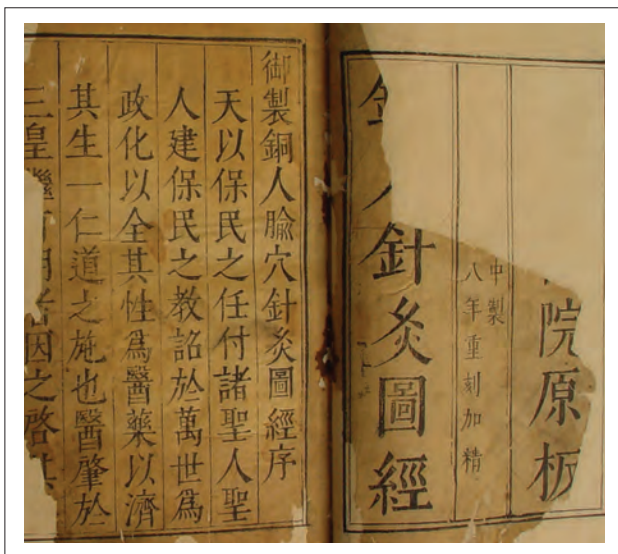 院原板
中製
八年重刻加精
人針灸圖經
御製銅人腧穴針灸圖經序
天以保民之任付諸聖人聖
人建保民之教詔於萬世爲
政化以全其性爲醫藥以濟
其生一仁道之施也醫肇於
三皇繼明者因之啓其